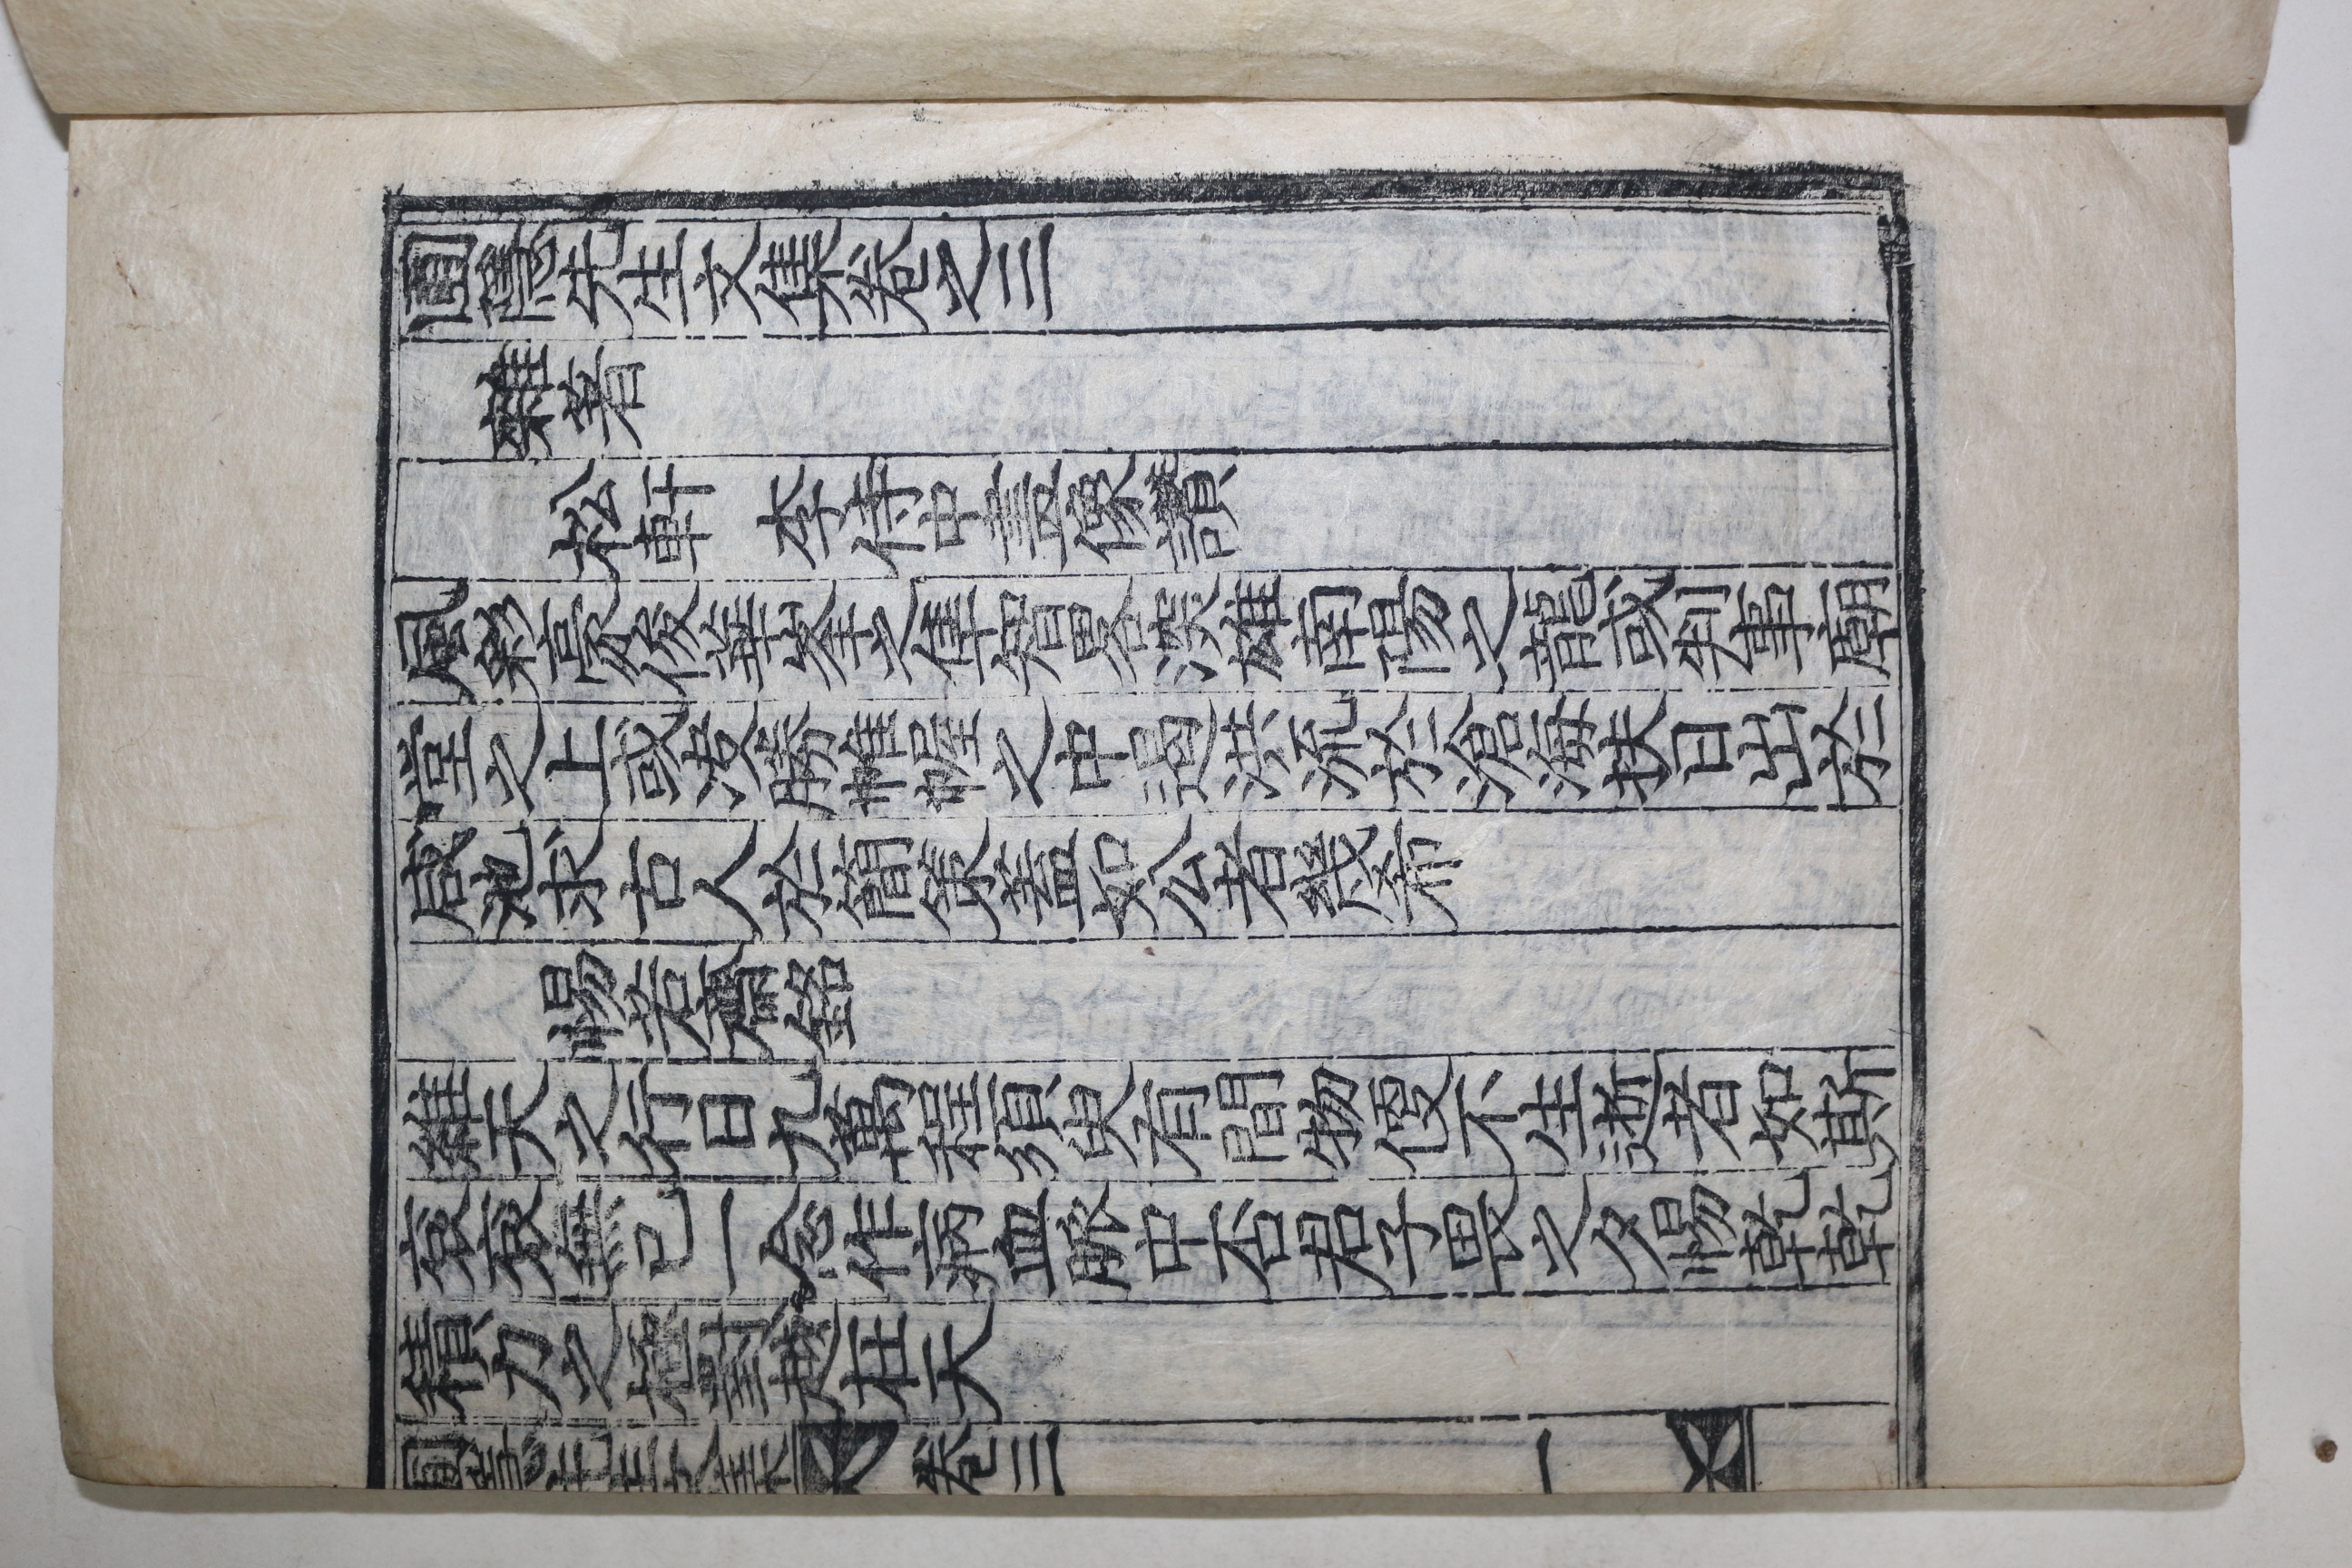 圃隱先生文集卷之三
雜著
松軒 李侍中畫像讚
風彩豪俊華峯之隼智畧深雄南陽之龍或判事廟
堂之上或决勝帷幄之中遏洪流於滄海扶日出於
咸池求古人於簡策蓋如公者幾希
惕若齋銘
維天之行日九萬程須臾有間物便不生逝者如斯
袞袞無已一念作病血脈中否君子畏之夕惕乾乾
積力之極對越在天
圃隱先生文集 卷三 一